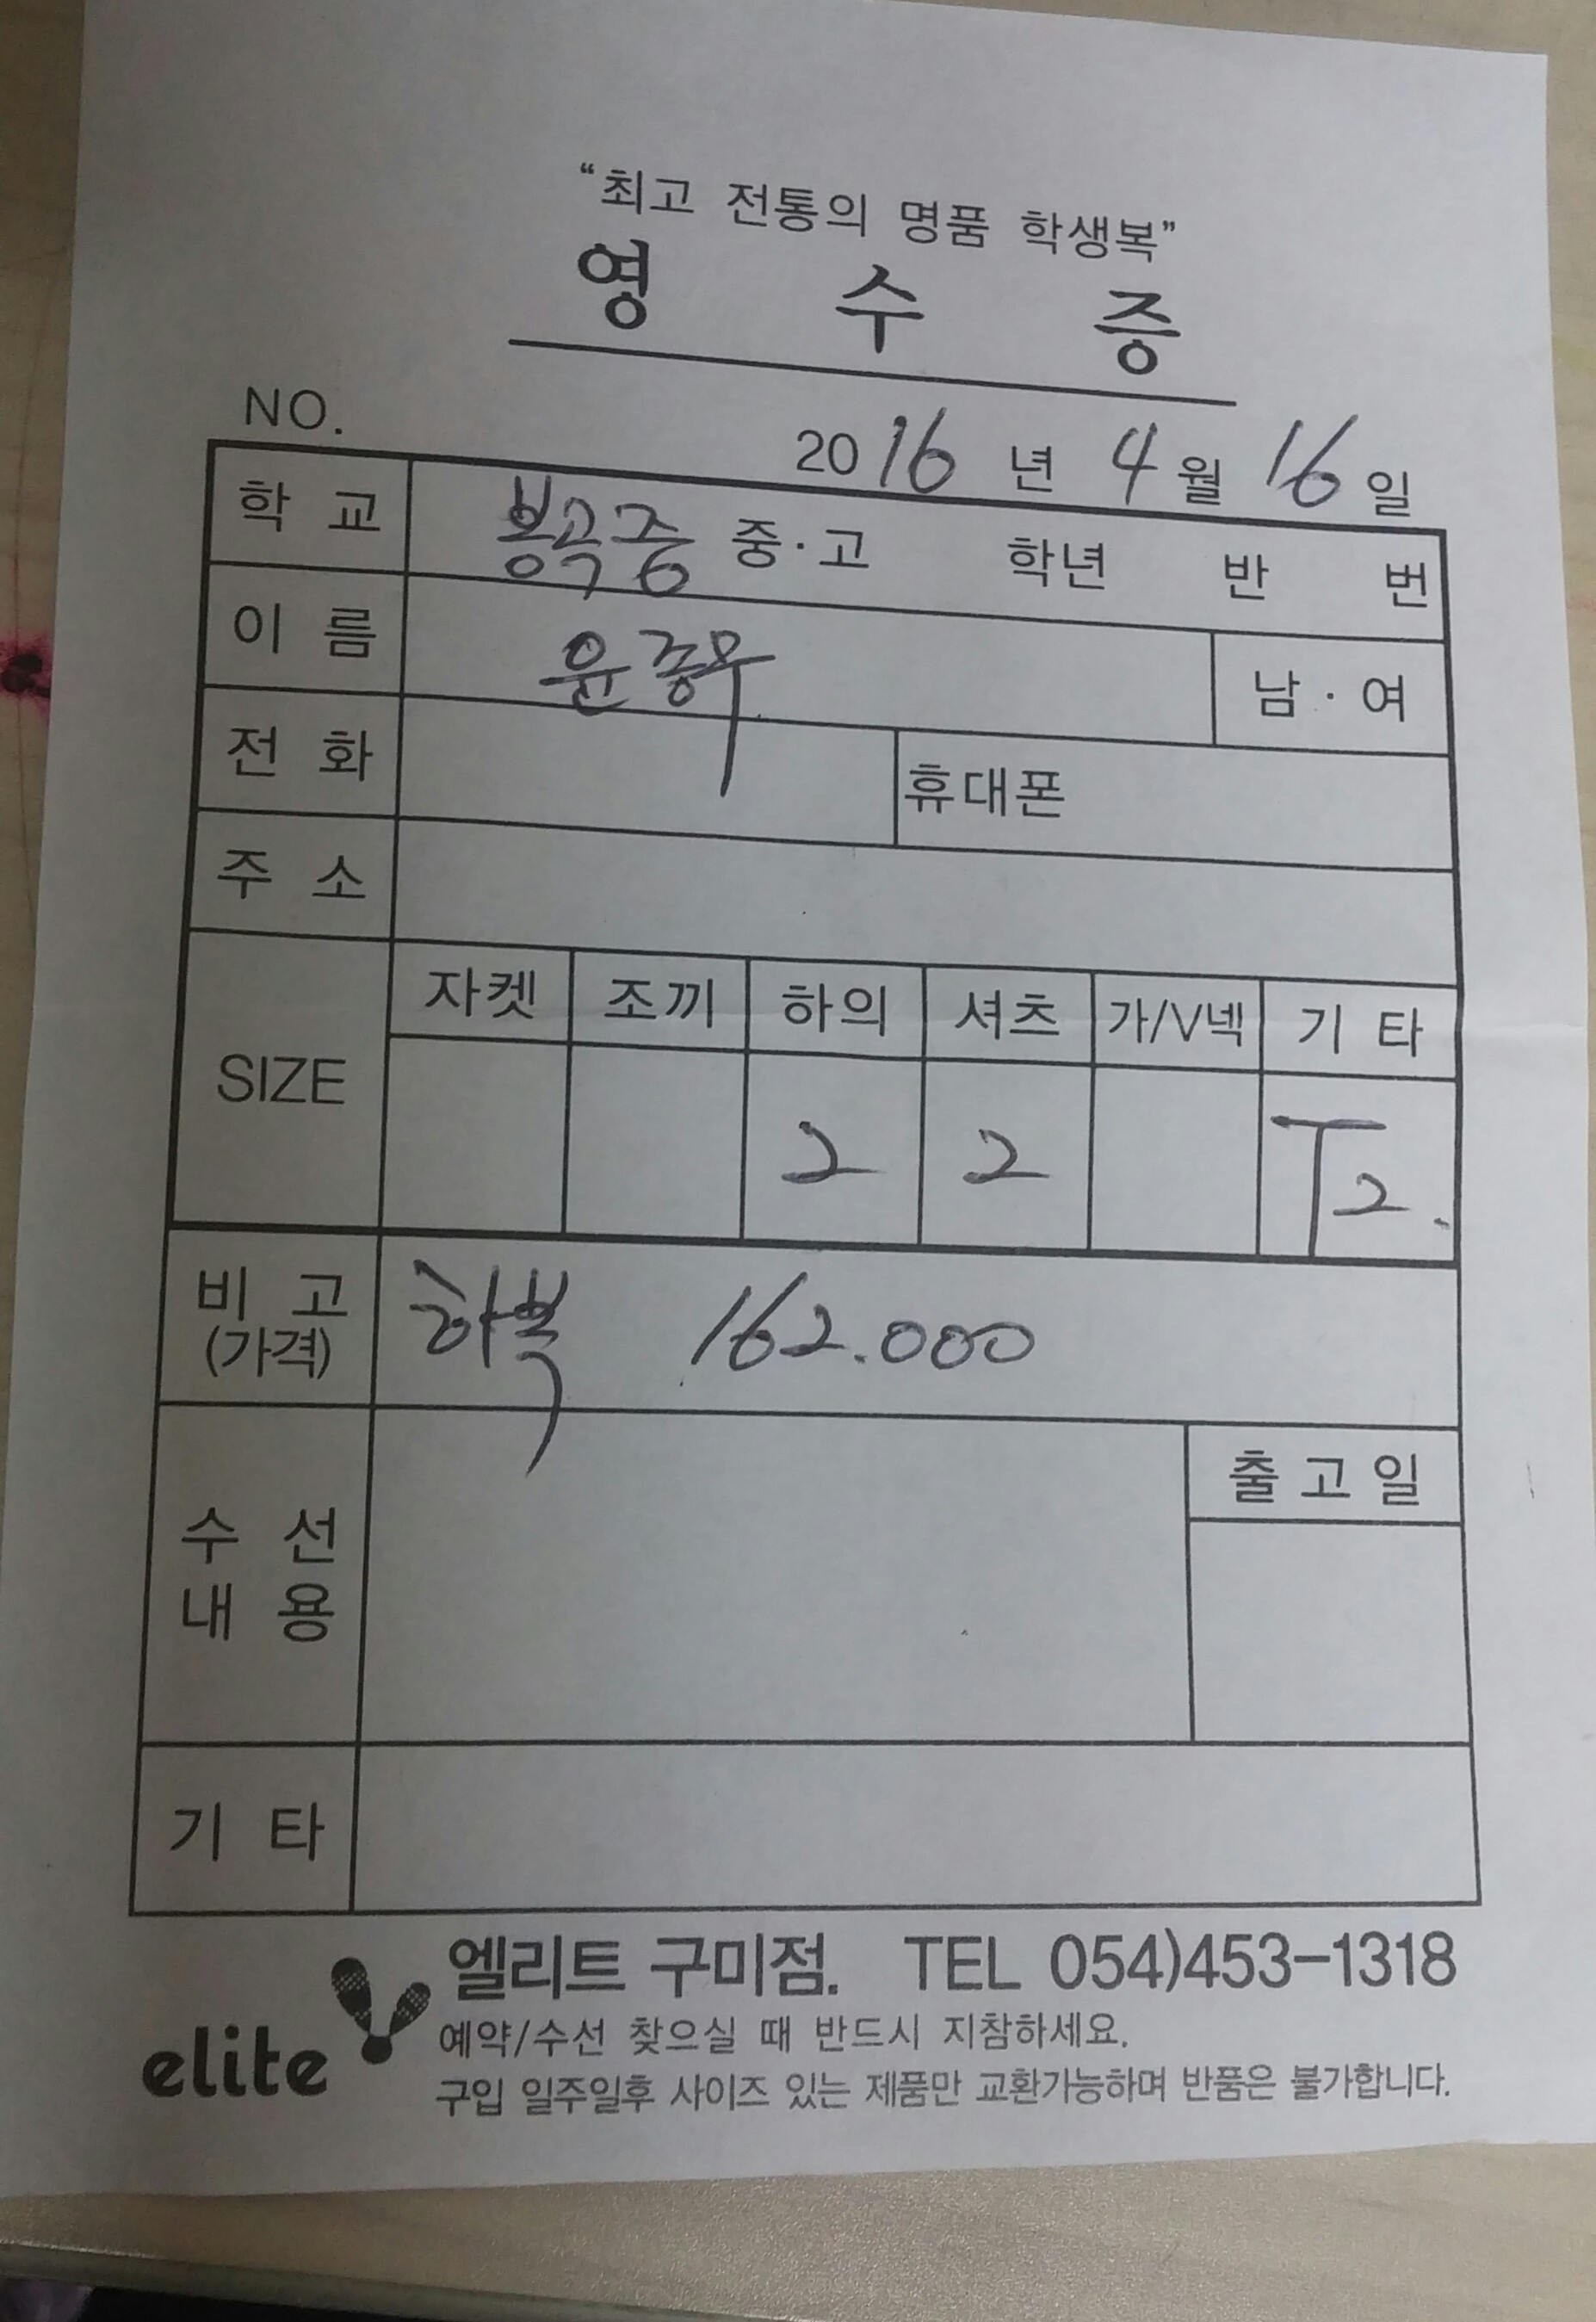 “최고 전통의 명품 학생복”
영 수 증
NO.
2016년 4월 16일
학 교 봉곡중 중·고 학년 반 번
이 름 윤종우 남·여
전 화 휴대폰
주 소
SIZE 자켓 조끼 하의 셔츠 가/V넥 기 타
2 2 T2.
비 고 (가격) 하복 162.000
수 선 내 용 출고일
기 타
엘리트 구미점. TEL 054)453-1318
예약/수선 찾으실 때 반드시 지참하세요.
elite
구입 일주일후 사이즈 있는 제품만 교환가능하며 반품은 불가합니다.